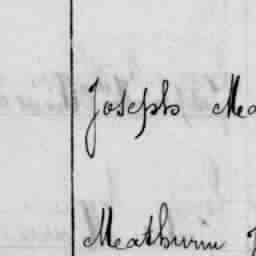 Joseph Me
Meathurin